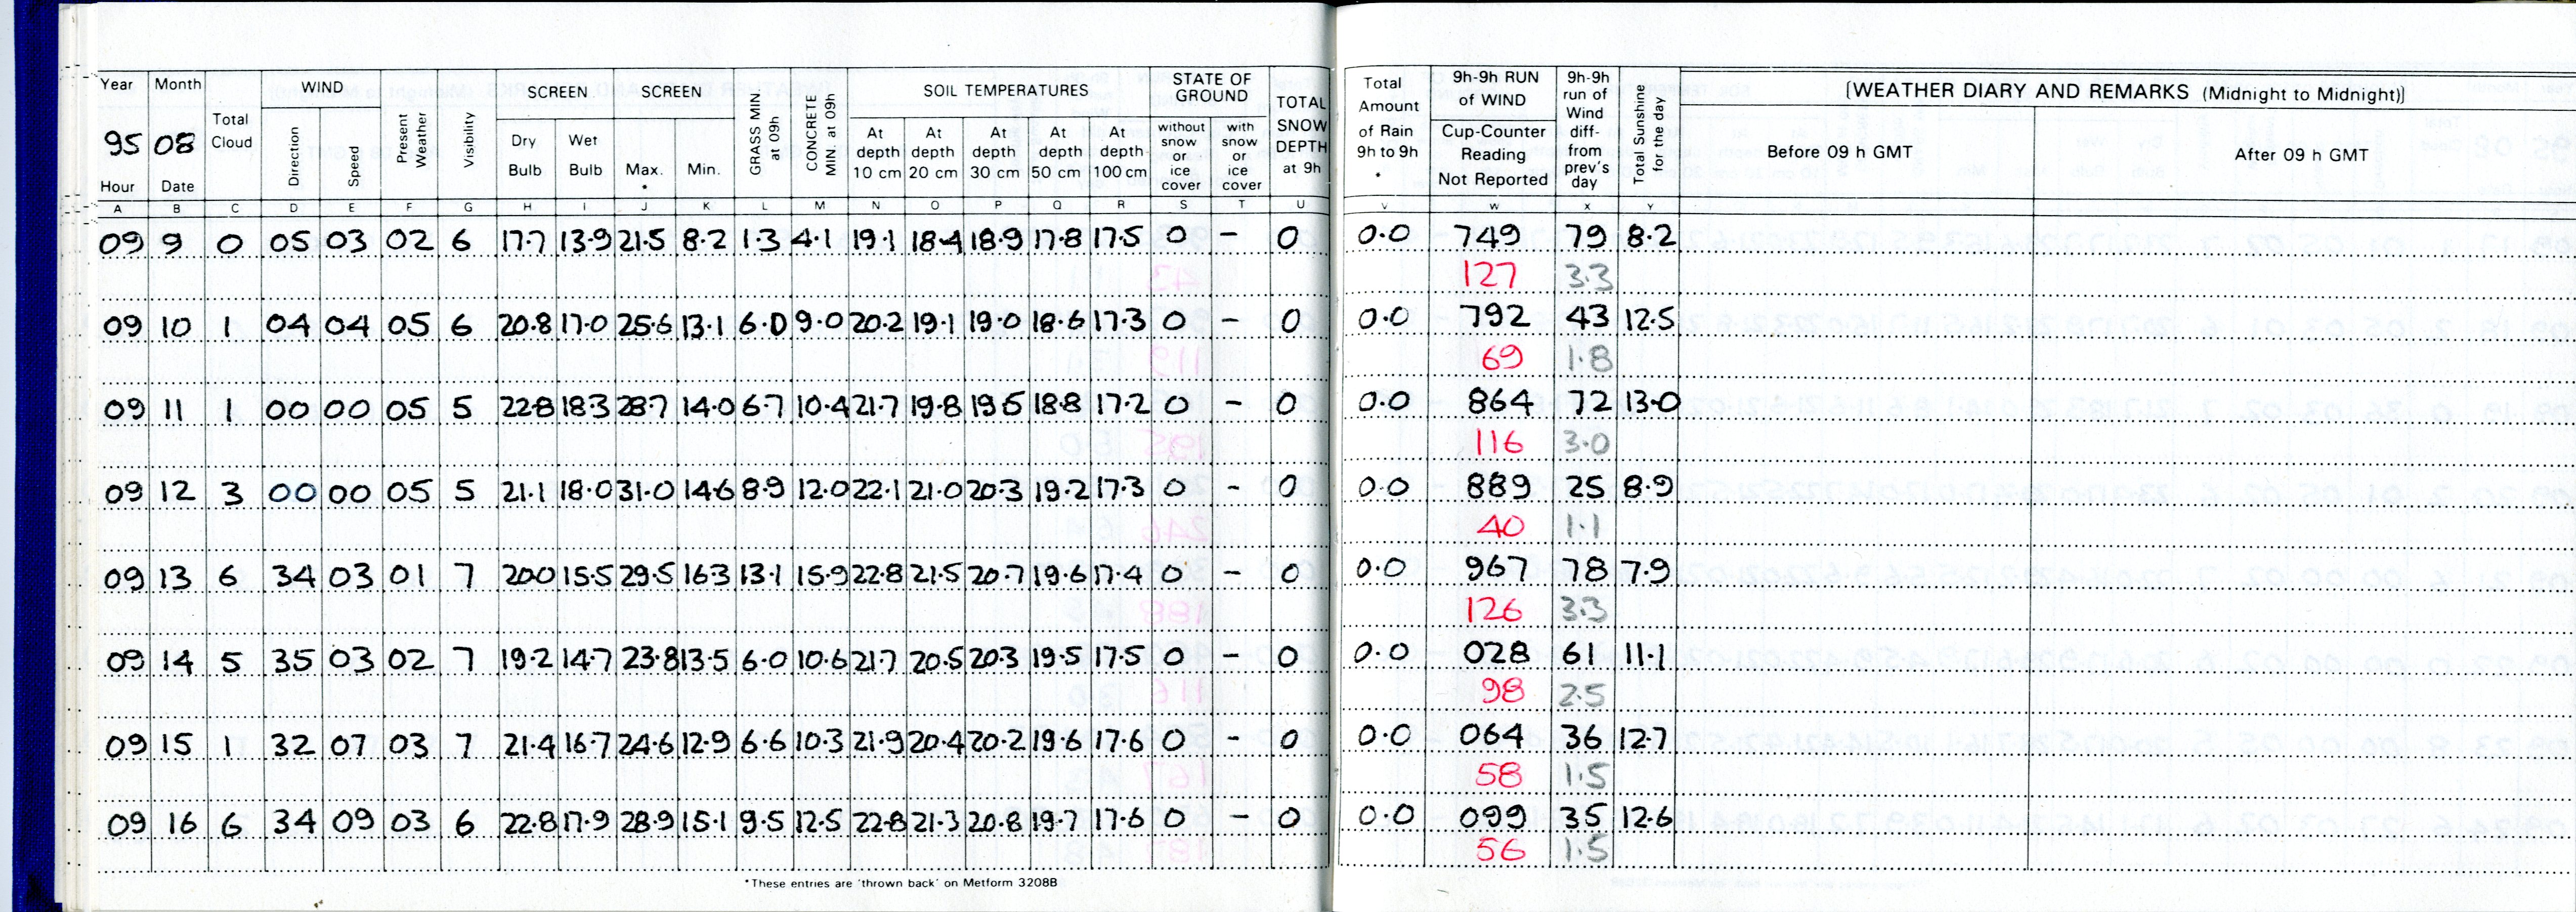 Year Month Total Cloud WIND Present Weather Visibility SCREEN SCREEN GRASS MIN at 09h CONCRETE MIN. at 09h SOIL TEMPERATURES STATE OF GROUND TOTAL SNOW DEPTH at 9h Total Amount of Rain 9h to 9h * 9h-9h RUN of WIND 9h-9h run of Wind diff- from prev's day Total Sunshine for the day (WEATHER DIARY AND REMARKS (Midnight to Midnight))
95 08 Direction Speed Dry Bulb Wet Bulb Max. * Min. At depth 10 cm At depth 20 cm At depth 30 cm At depth 50 cm At depth 100 cm without snow or ice cover with snow or ice cover Cup-Counter Reading Not Reported Before 09 h GMT After 09 h GMT
Hour Date
A B C D E F G H I J K L M N O P Q R S T U V W X Y
09 9 0 05 03 02 6 17.7 13.9 21.5 8.2 1.3 4.1 19.1 18.4 18.9 17.8 17.5 0 - 0 0.0 749 79 8.2
127 3.3
09 10 1 04 04 05 6 20.8 17.0 25.6 13.1 6.0 9.0 20.2 19.1 19.0 18.6 17.3 0 - 0 0.0 792 43 12.5
69 1.8
09 11 1 00 00 05 5 22.8 18.3 28.7 14.0 6.7 10.4 21.7 19.8 19.5 18.8 17.2 0 - 0 0.0 864 72 13.0
116 3.0
09 12 3 00 00 05 5 21.1 18.0 31.0 14.6 8.9 12.0 22.1 21.0 20.3 19.2 17.3 0 - 0 0.0 889 25 8.9
40 1.1
09 13 6 34 03 01 7 20.0 15.5 29.5 16.3 13.1 15.9 22.8 21.5 20.7 19.6 17.4 0 - 0 0.0 967 78 7.9
126 3.3
09 14 5 35 03 02 7 19.2 14.7 23.8 13.5 6.0 10.6 21.7 20.5 20.3 19.5 17.5 0 - 0 0.0 028 61 11.1
98 2.5
09 15 1 32 07 03 7 21.4 16.7 24.6 12.9 6.6 10.3 21.9 20.4 20.2 19.6 17.6 0 - 0 0.0 064 36 12.7
58 1.5
09 16 6 34 09 03 6 22.8 17.9 28.9 15.1 9.5 12.5 22.8 21.3 20.8 19.7 17.6 0 - 0 0.0 099 35 12.6
56 1.5
*These entries are 'thrown back' on Metform 3208B